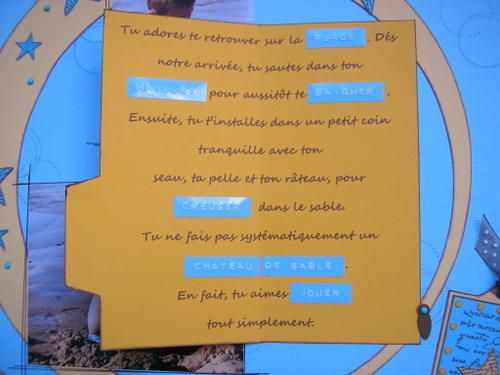 Tu adores te retrouver sur la PLAGE. Dés
notre arrivée, tu sautes dans ton
MAILLOT pour aussitôt te BAIGNER.
Ensuite, tu t'installes dans un petit coin
tranquille avec ton
seau, ta pelle et ton râteau, pour
CREUSER dans le sable.
Tu ne fais pas systématiquement un
CHATEAU DE SABLE.
En fait, tu aimes JOUER
tout simplement.